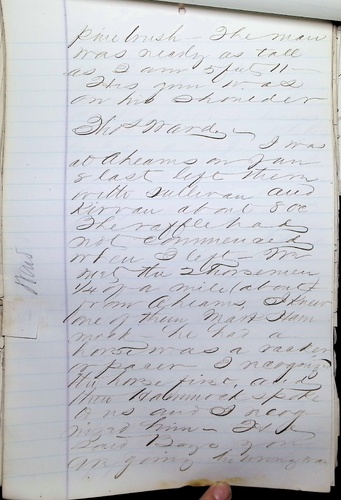 pine brush — The man
was nearly as tall
as I am 5 feet 11 —
His gun was
on his shoulder
Thos Wardy —
I was
at Aheams on Jan
8 last left there
with Sullivan and
Kirvan about 8 oc
The raffle had
not commenced
when I left — We
met the 2 horsemen
1/4 of a mile (about
from Aheams, I knew
one of them Mark Ham
mock he rod a
horse was a racker
or pacer I recognized
the horse first, and
then Hammock spoke
to us and I recog
nized him — He
said Boys you
are going the wrong way